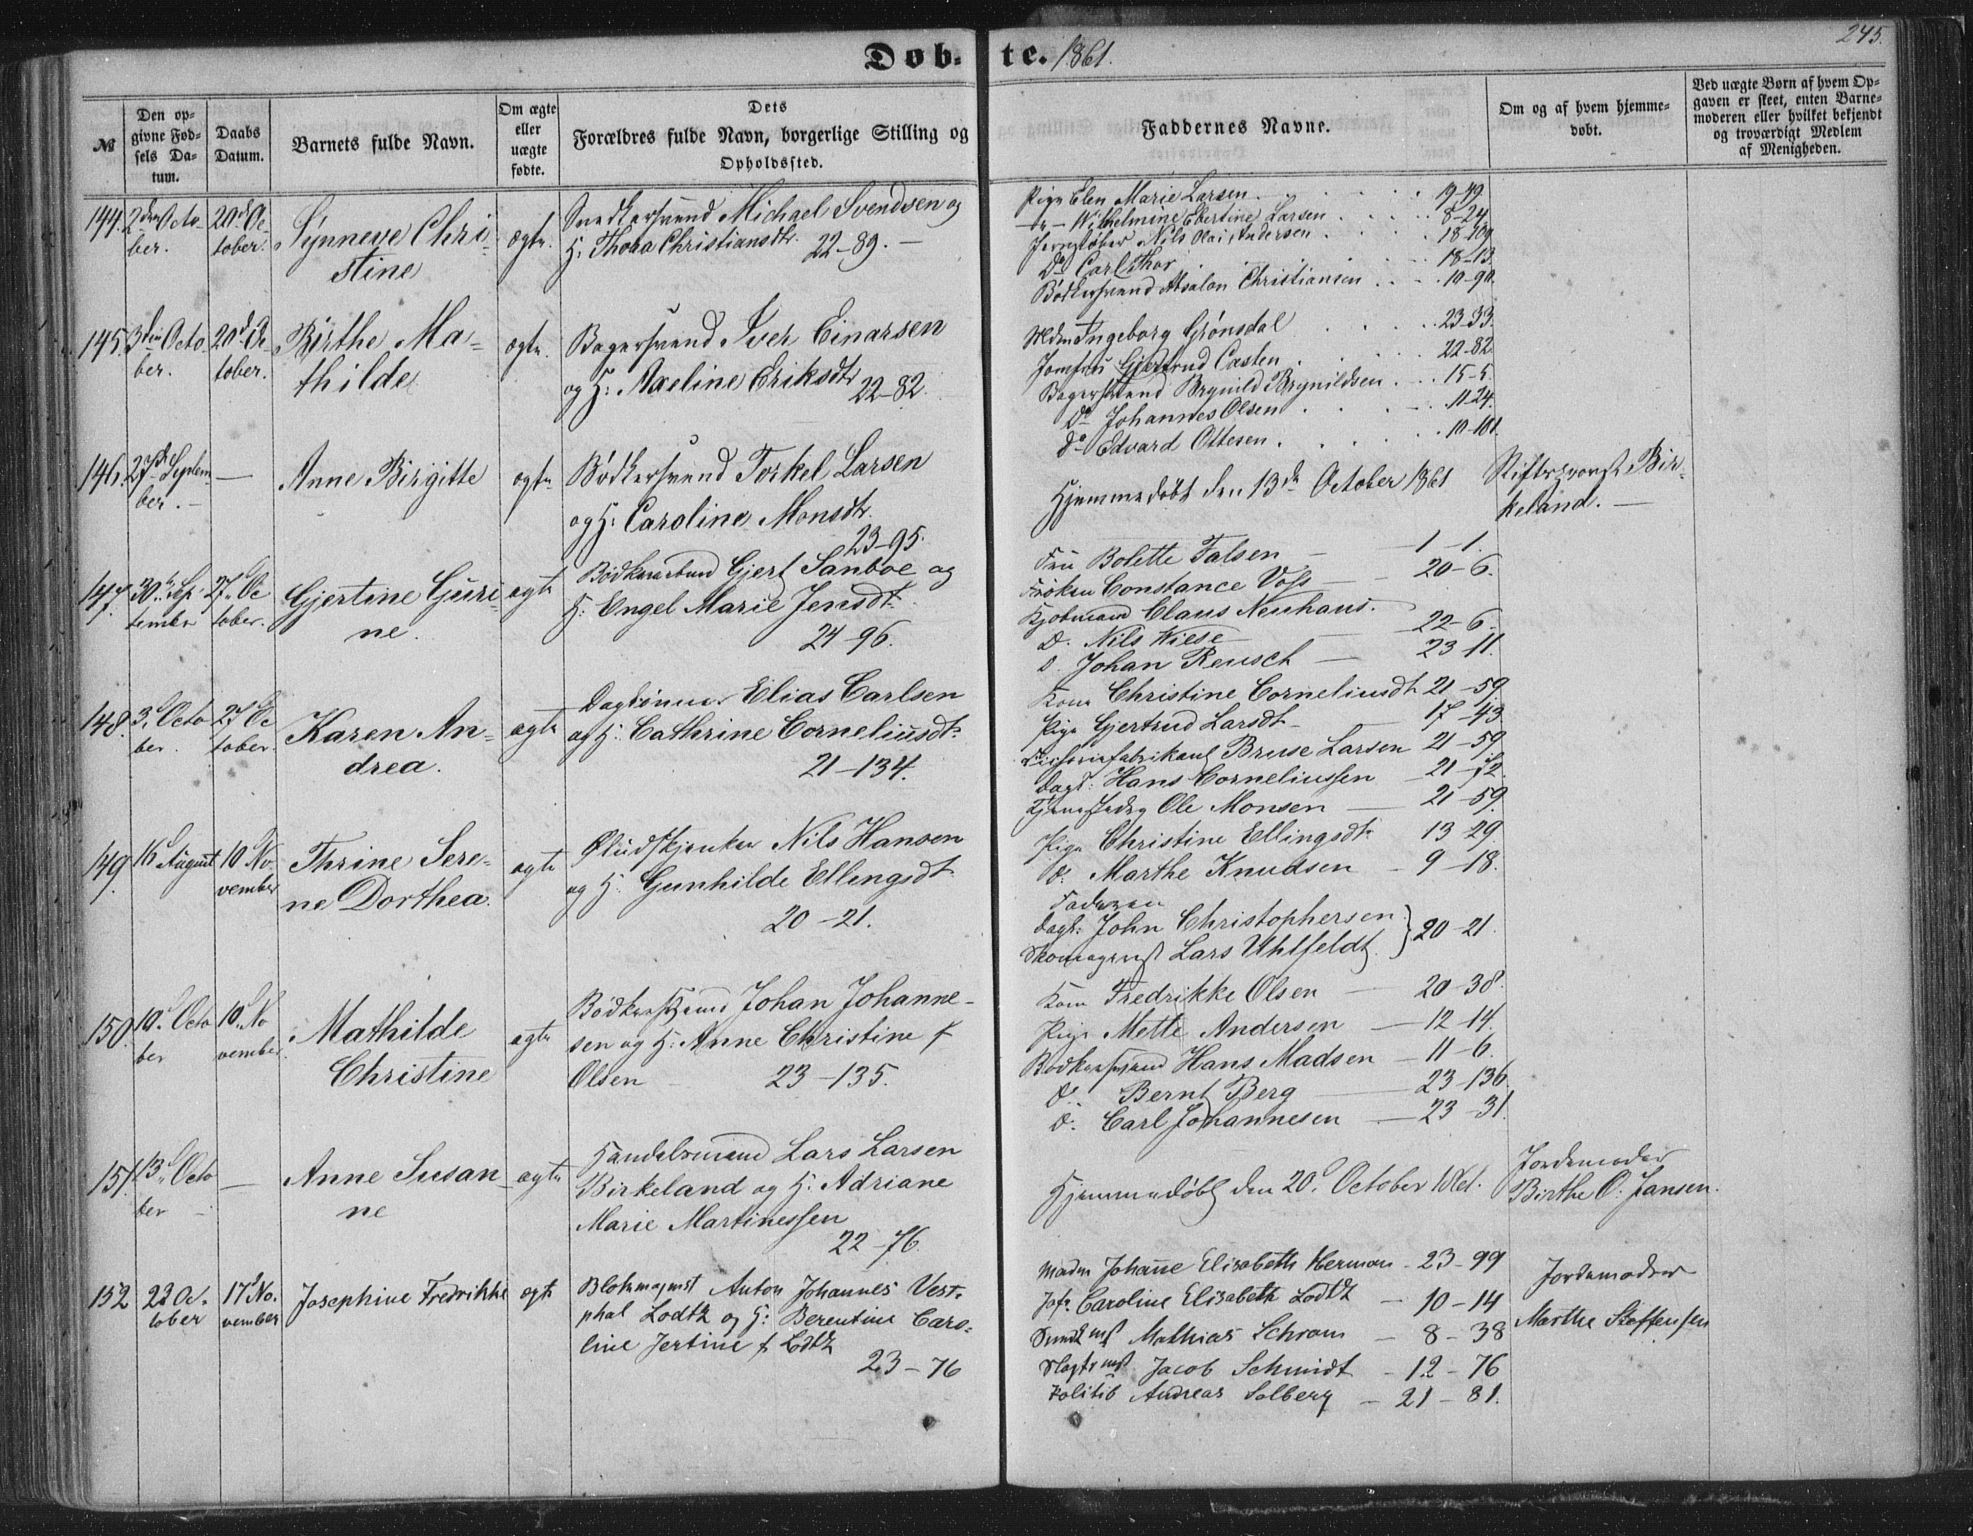 Døb-te. 1861.
245.
№
Den op-
givne Fød-
sels Da-
tum.
Daabs
Datum.
Barnets fulde Navn.
Om ægte
eller
uægte
fødte.
Dets
Forældres fulde Navn, borgerlige Stilling og
Opholdssted.
Faddernes Navne.
Om og af hvem hjemme-
døbt.
Ved uægte Børn af hvem Op-
gaven er skeet, enten Barne-
moderen eller hvilket bekjendt
og troværdigt Medlem
af Menigheden.
144. 2den Octo-
ber.
20de Oc-
tober.
Synneve Chri-
stine
ægte.
Snedkersvend Michael Svendsen og
H. Thora Christiansdtr.
22-89. —
Pige Elen Marie Larsen 19-49.
do — Wilhelmine Ebertine Larsen 8-24
Nils Olai Andersen 18-109
Do Carl Thor 18-13.
Bødkersvend Absalon Christiansen 10-90.
145. 3die Octo-
ber.
20de Oc-
tober.
Birthe Ma-
thilde
ægte.
Bagersvend Iver Einarsen
og H: Axeline Eriksdtr
22-82.
Mdm Ingeborg Grønsdal 23-33.
Jomfru Gjertrud Casten 22-82.
Bagersvend Brynild Brynildsen 15-5
Do Johannes Olsen 11-24.
do Edvard Ottesen 10-101
146. 27de Septem-
ber. —
—
Anne Birgitte
ægte
Bødkersvend Torkel Larsen
og H: Caroline Monsdtr.
23-95.
Hjemmedøbt den 13de October 1861
Stiftsprovst Bir-
keland. —
147. 30te Sep-
tember
27de Oc-
tober.
Gjertine Guri-
ne.
ægte
Gjert Sanboe og
H. Engel Marie Jensdtr.
24-96.
Fru Bolette Falsen — 1-1.
Frøken Constance Voss — 20-6.
Kjøbmand Claus Neuhaus.
D. Nils Wiese — 22-6.
D. Johan Reusch — 23-11.
148. 3die Octo-
ber.
27de Oc-
tober.
Karen An-
drea.
ægte
Elias Carlsen
og H. Cathrine Corneliusdtr.
21-134.
Kone Christine Corneliusdtr 21-59.
Pige Gjertrud Larsdtr. 17-43
Bruse Larsen 21-59.
Dagk: Hans Corneliussen — 21-12.
Ole Monsen — 21-59.
149. 16de August
10de No-
vember
Thrine Sere-
ne Dorthea.
ægte
Nils Hansen
og H. Gunhilde Ellingsdtr.
20-21.
Pige Christine Ellingsdtr 13-29
D. Marthe Knudsen — 9-18.
Faderen
Dagk: John Christophersen } 20-21.
Lars Uhlfeldt.
150. 10de Octo-
ber
10de No-
vember.
Mathilde
Christine
ægte
Bødkersvend Johan Johanne-
sen og H: Anne Christine f
Olsen — 23-135.
Kone Fredrikke Olsen — 20-38.
Pige Mette Andersen — 12-14.
Bødkersvend Hans Madsen — 11-6.
D. Bernt Berg — 23-136
D. Carl Johannesen — 23-31.
151. 13de Octo-
ber —
—
Anne Susan-
ne
ægte
Handelsmand Lars Larsen
Birkeland og H: Adriane
Marie Martinessen
22-76
Hjemmedøbt den 20de October 1861.
Jordemoder
Birthe O. Jansen.
152 22 Oc-
tober
17de No-
vember
Josephine Fredrikke
ægte
Blokmagmst Anton Johannes Vest-
phal Lodtz og H: Berentine Caro-
line Jertine f. Lodtz
23-76
Madm Johanne Elisabeth Herman - 23-99
Jofr. Caroline Elisabeth Lodtz - 10-14
Mathias Schram - 8-38
Jacob Schmidt - 12-76
Politib Andreas Solberg - 21-81.
Jordemoder
Marthe Steffensen